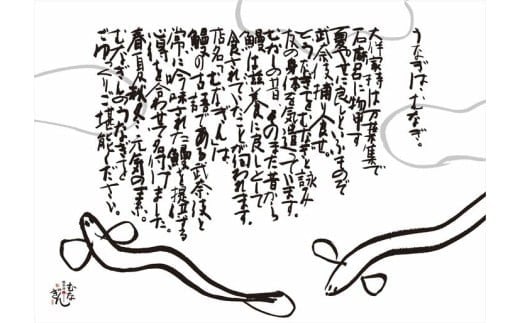 うなぎは、むなぎ。
大伴家持は万葉集で
石麻呂に物申す
夏やせに良しといふものぞ
武奈伎捕り食せ
といった歌でむなぎを詠み
友の身体を気遣っています。
むかしの昔、そのまた昔から
鰻は滋養に良しとして
食されていたことが伺われます。
店名の「むなぎん」は、
鰻の古語である武奈伎と
常に吟味された鰻を提供する
吟を合わせて名付けました。
春夏秋冬、元気の素。
むなぎんのうなぎを
ごゆっくりご堪能ください。
むな
ぎん